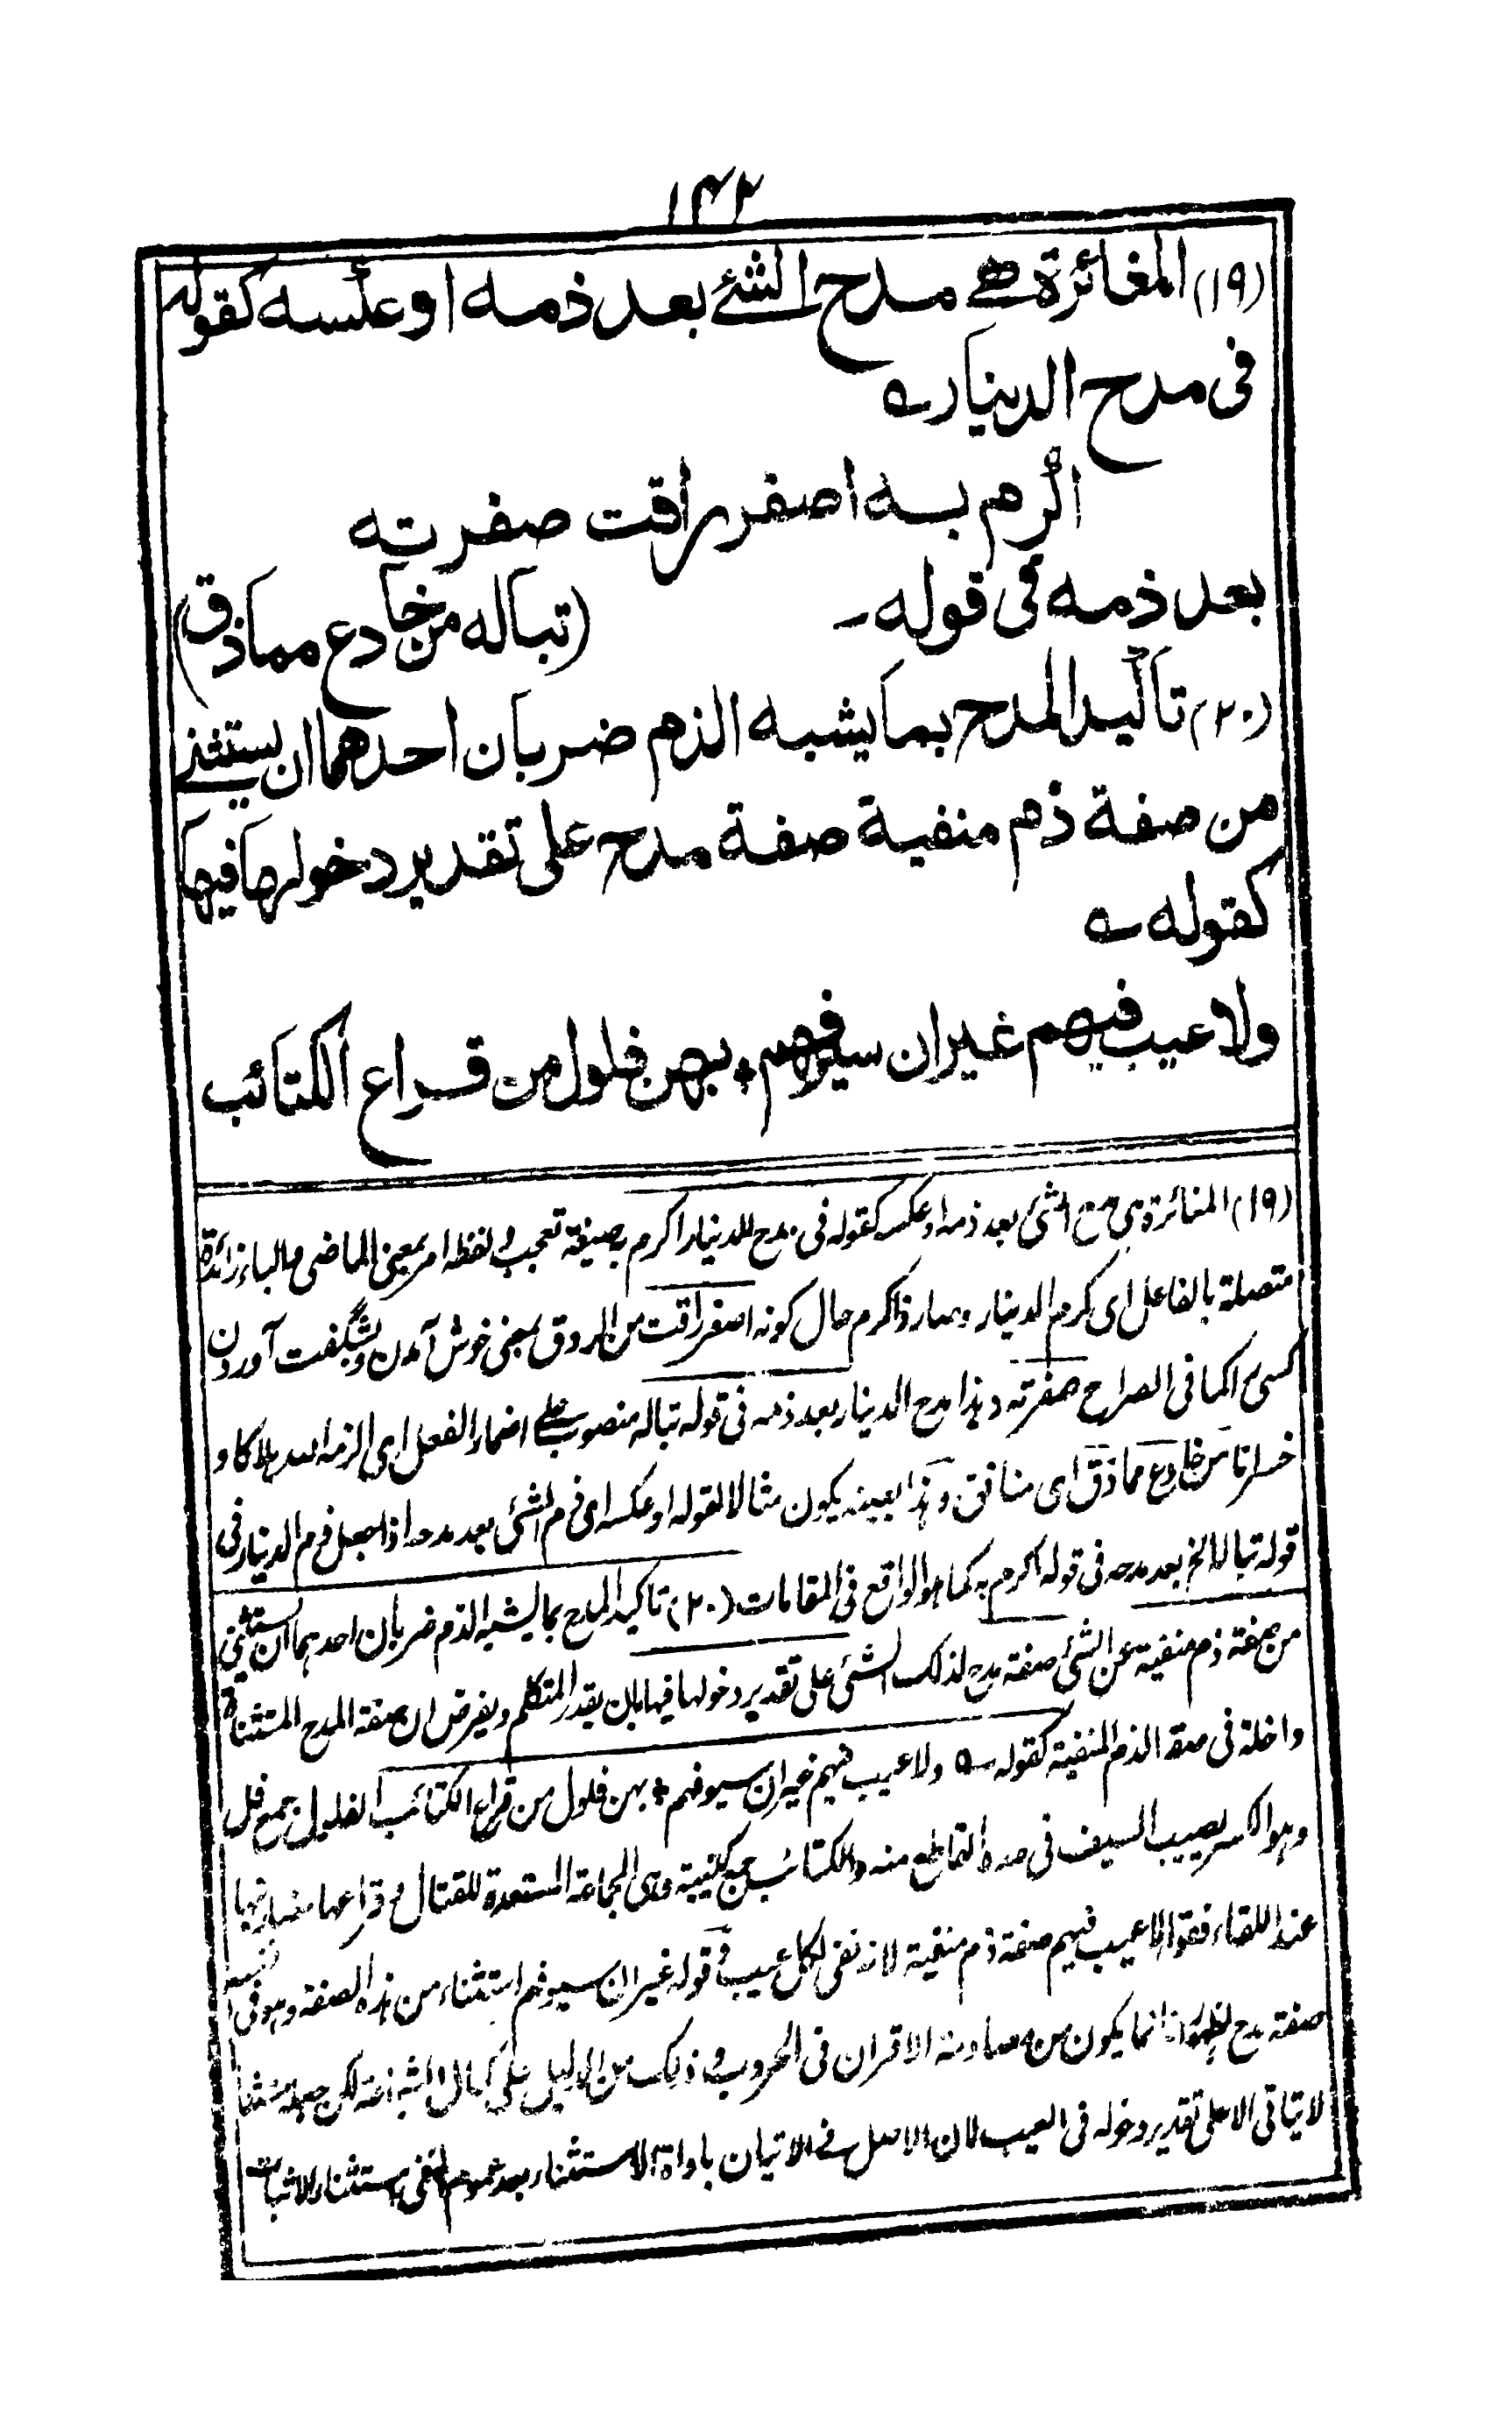 ١٤٢
(١٩) المغائرة هي مدح الشئ بعد ذمه او عكسه كقوله
فى مدح الدينار ؎
اكرم به اصفر راقت صفرته
بعد ذمه فى قوله ـ (تباله من خادع مماذق)
(٢٠) تاكيد المدح بما يشبه الذم ضربان احدهما ان يستثنى
من صفة ذم منفية صفة مدح على تقدير دخولها فيها
كقوله ؎
ولا عيب فيهم غير ان سيوفهم ٭ بهن فلول من قراع الكتائب
(١٩) المغائرة هى مدح الشئ بعد ذمه او عكسه كقوله فى مدح الدينار اكرم بصيغة تعجب و لفظه امر بمعنى الماضى والباء زائدة
متصلة بالفاعل اى كرم الدينار وصار ذا كرم حال كونه اصفر راقت من الروق بمعنى خوش آمدن و بشگفت آوردن
كسى را كما فى الصراح صفرته و هذا مدح الدينار بعد ذمه فى قوله تباله منصوب على اضمار الفعل اى الزمه الله هلاكا و
خسرانا من خادع مماذق اى منافق و هذا بعينه يكون مثالا لقوله او عكسه اى ذم الشئ بعد مدحه اذا جعل ذم الدينار فى
قوله تبا له الخ بعد مدحه فى قوله اكرم به كما هو الواقع فى المقامات (٢٠) تاكيد المدح بما يشبه الذم ضربان احدهما ان يستثنى
من صفة ذم منفية عن الشئ صفة مدح لذلك الشئ على تقدير دخولها فيها بان يقدر المتكلم و يفرض ان صفة المدح المستثناة
داخلة فى صفة الذم المنفية كقوله ؎ ولا عيب فيهم غير ان سيوفهم ٭ بهن فلول من قراع الكتائب الفلول جمع فل
و هو الكسر يصيب السيف فى حده القاطع منه والكتائب جمع كتيبة وهى الجماعة المستعدة للقتال و قراعها مضاربتها
عند اللقاء فقوله لا عيب فيهم صفة ذم منفية لانه نفى لكل عيب و قوله غير ان سيوفهم استثناء من هذه الصفة و هو فى
صفة مدح انما يكون من مصادمة الاقران فى الحروب و ذلك من الدليل على كمال الشجاعة لكن جعله مستثنا
لا يتاتى الا على تقدير دخوله فى العيب لان الاصل فى الاتيان باداة الاستثناء بعد عموم النفى استثناء الاثبات